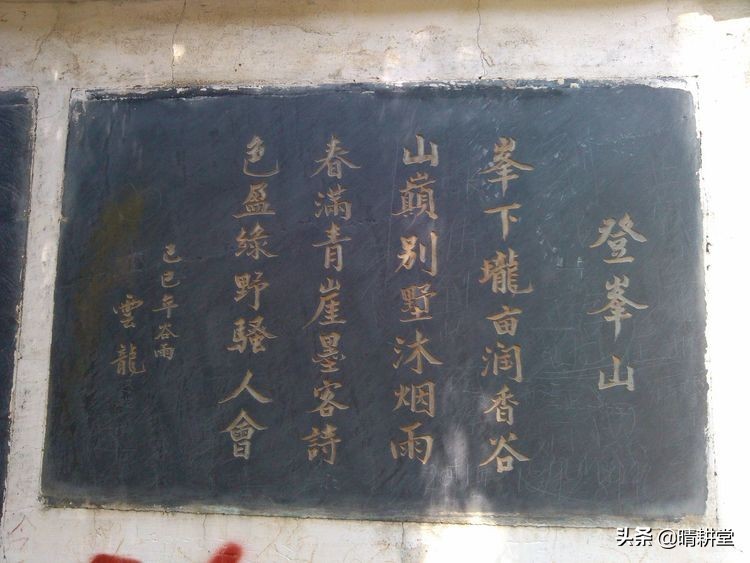 登峯山
峯下壠亩润香谷
山巔别墅沐烟雨
春满青崖墨客詩
色盈綠野騷人會
己巳年谷雨
雲龍
头条 @晴耕堂